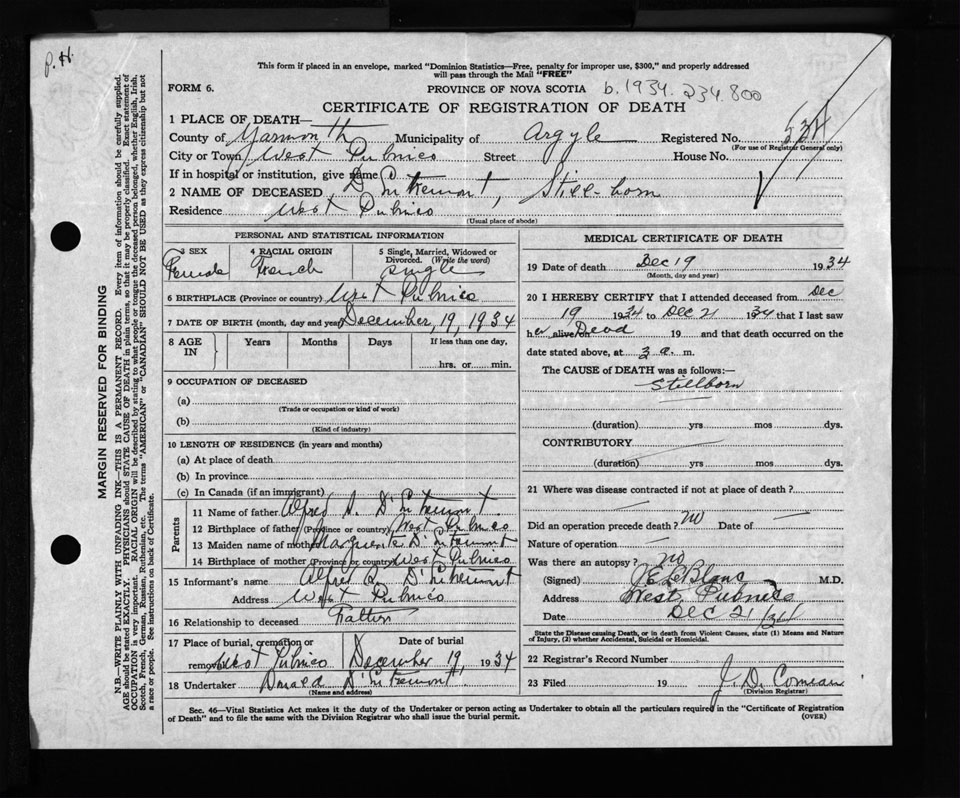 P. H.
This form if placed in an envelope, marked "Dominion Statistics—Free, penalty for improper use, $300," and properly addressed
will pass through the Mail "FREE"
FORM 6.
PROVINCE OF NOVA SCOTIA b. 1934. 234.800
CERTIFICATE OF REGISTRATION OF DEATH
1 PLACE OF DEATH—
County of Yarmouth Municipality of Argyle Registered No. 534
(For use of Registrar General only)
City or Town West Pubnico Street House No.
If in hospital or institution, give name
2 NAME OF DECEASED D'Entremont, Still-born
Residence West Pubnico
(Usual place of abode)
PERSONAL AND STATISTICAL INFORMATION
3 SEX Female
4 RACIAL ORIGIN French
5 Single, Married, Widowed or
Divorced. (Write the word) single
6 BIRTHPLACE (Province or country) West Pubnico
7 DATE OF BIRTH (month, day and year) December, 19, 1934
8 AGE IN Years Months Days If less than one day,
hrs. or min.
9 OCCUPATION OF DECEASED
(a)
(Trade or occupation or kind of work)
(b)
(Kind of industry)
10 LENGTH OF RESIDENCE (in years and months)
(a) At place of death
(b) In province
(c) In Canada (if an immigrant)
Parents
11 Name of father Alfred S. D'Entremont
12 Birthplace of father (Province or country) West Pubnico
13 Maiden name of mother Marguerite D'Entremont
14 Birthplace of mother (Province or country) West Pubnico
15 Informant's name Alfred D'Entremont
Address West Pubnico
16 Relationship to deceased Father
17 Place of burial, cremation or Date of burial
removal West Pubnico December 19, 1934
18 Undertaker Donald D'Entremont
(Name and address)
MEDICAL CERTIFICATE OF DEATH
19 Date of death Dec 19 1934
(Month, day and year)
20 I HEREBY CERTIFY that I attended deceased from Dec
19 1934 to Dec 21 1934 that I last saw
her alive/on Dead 19 and that death occurred on the
date stated above, at 3 a. m.
The CAUSE of DEATH was as follows:—
Stillborn
(duration) yrs mos dys.
CONTRIBUTORY
(duration) yrs mos dys.
21 Where was disease contracted if not at place of death?
Did an operation precede death? no Date of —
Nature of operation —
Was there an autopsy? no
(Signed) J E LeBlanc M.D.
Address West Pubnico
Date Dec 21/34
State the Disease causing Death, or in death from Violent Causes, state (1) Means and Nature
of Injury, (2) whether Accidental, Suicidal or Homicidal.
22 Registrar's Record Number
23 Filed 19 J. D. Comeau
(Division Registrar)
Sec. 46—Vital Statistics Act makes it the duty of the Undertaker or person acting as Undertaker to obtain all the particulars required in the "Certificate of Registration
of Death" and to file the same with the Division Registrar who shall issue the burial permit. (OVER)
MARGIN RESERVED FOR BINDING
N.B.—WRITE PLAINLY WITH UNFADING INK—THIS IS A PERMANENT RECORD. Every item of information should be carefully supplied.
AGE should be stated EXACTLY. PHYSICIANS should STATE CAUSE OF DEATH in plain terms, so that it may be properly classified. Exact statement of
OCCUPATION is very important. RACIAL ORIGIN will be described by stating to what people or tongue the deceased person belonged, whether English, Irish,
Scotch, French, German, Russian, Ruthenian, etc. The terms "AMERICAN" or "CANADIAN" SHOULD NOT BE USED as they express citizenship but not
a race or people. See instructions on back of Certificate.